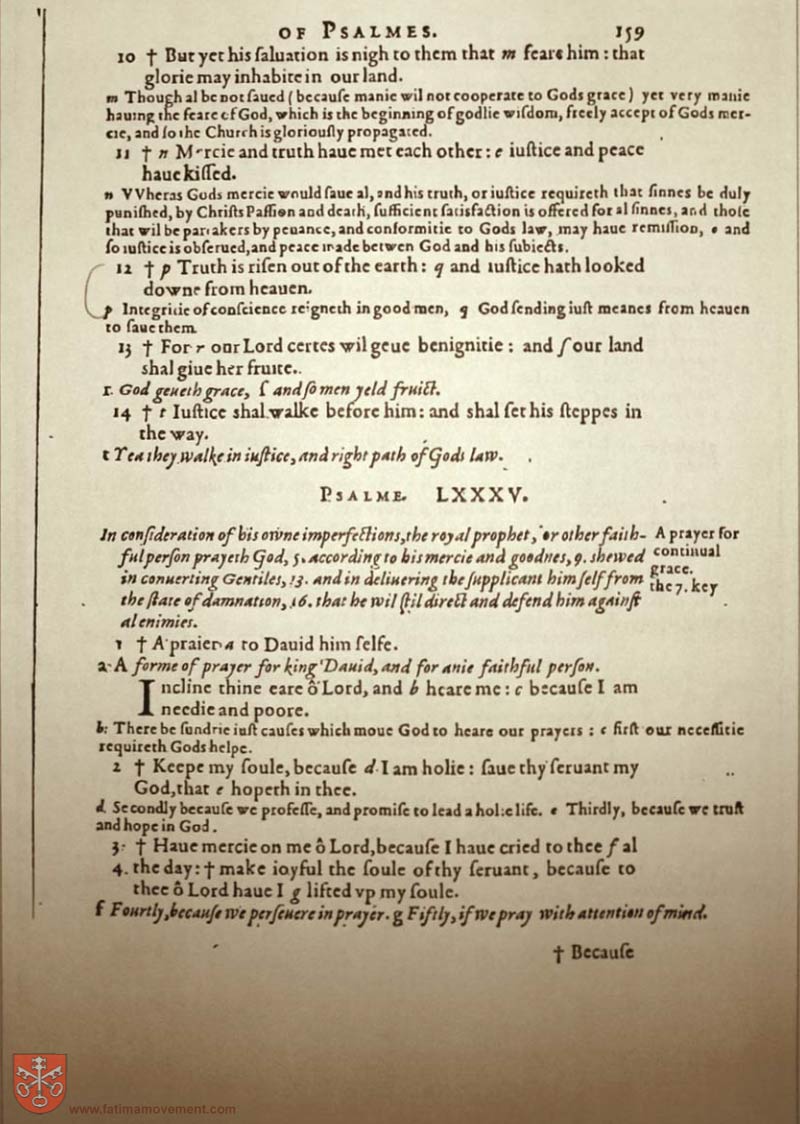 OF PSALMES. 159
10 † But yet his saluation is nigh to them that m feare him : that
glorie may inhabite in our land.
m Though al be not saued ( because manie wil not cooperate to Gods grace ) yet very manie
hauing the feare of God, which is the beginning of godlie wisdom, freely accept of Gods mer-
cie, and so the Church is gloriously propagated.
11 † n Mercie and truth haue met each other : e iustice and peace
haue kissed.
n VVheras Gods mercie would saue al, and his truth, or iustice requireth that sinnes be duly
punished, by Christs Passion and death, sufficient satisfaction is offered for al sinnes, and those
that wil be partakers by penance, and conformitie to Gods law, may haue remission, o and
so iustice is obserued, and peace made betwen God and his subiects.
12 † p Truth is risen out of the earth : q and iustice hath looked
downe from heauen.
p Integritie of conscience reigneth in good men, q God sending iust meanes from heauen
to saue them.
13 † For r our Lord certes wil geue benignitie : and ſ our land
shal giue her fruite.
r. God geueth grace, ſ and so men yeld fruict.
14 † t Iustice shal walke before him : and shal set his steppes in
the way.
t Yea they walke in iustice, and right path of Gods law.
PSALME. LXXXV.
In consideration of his owne imperfections, the royal prophet, or other faith- A prayer for
ful person prayeth God, 5. according to his mercie and goodnes, 9. shewed continual
in conuerting Gentiles, 13. and in deliuering the supplicant him self from grace.
the state of damnation, 16. that he wil stil direct and defend him against the 7. key
al enimies.
1 † A praier a to Dauid him selfe.
a A forme of prayer for king Dauid, and for anie faithful person.
Incline thine eare ô Lord, and b heare me : c because I am
needie and poore.
b: There be sundrie iust causes which moue God to heare our prayers : c first our necessitie
requireth Gods helpe.
2 † Keepe my soule, because d I am holie : saue thy seruant my
God, that e hopeth in thee.
d Secondly because we professe, and promise to lead a holie life. e Thirdly, because we trust
and hope in God.
3 † Haue mercie on me ô Lord, because I haue cried to thee f al
4. the day : † make ioyful the soule of thy seruant, because to
thee ô Lord haue I g lifted vp my soule.
f Fourtly, because we perseuere in prayer. g Fiftly, if we pray with attention of mind.
† Because
www.fatimamovement.com